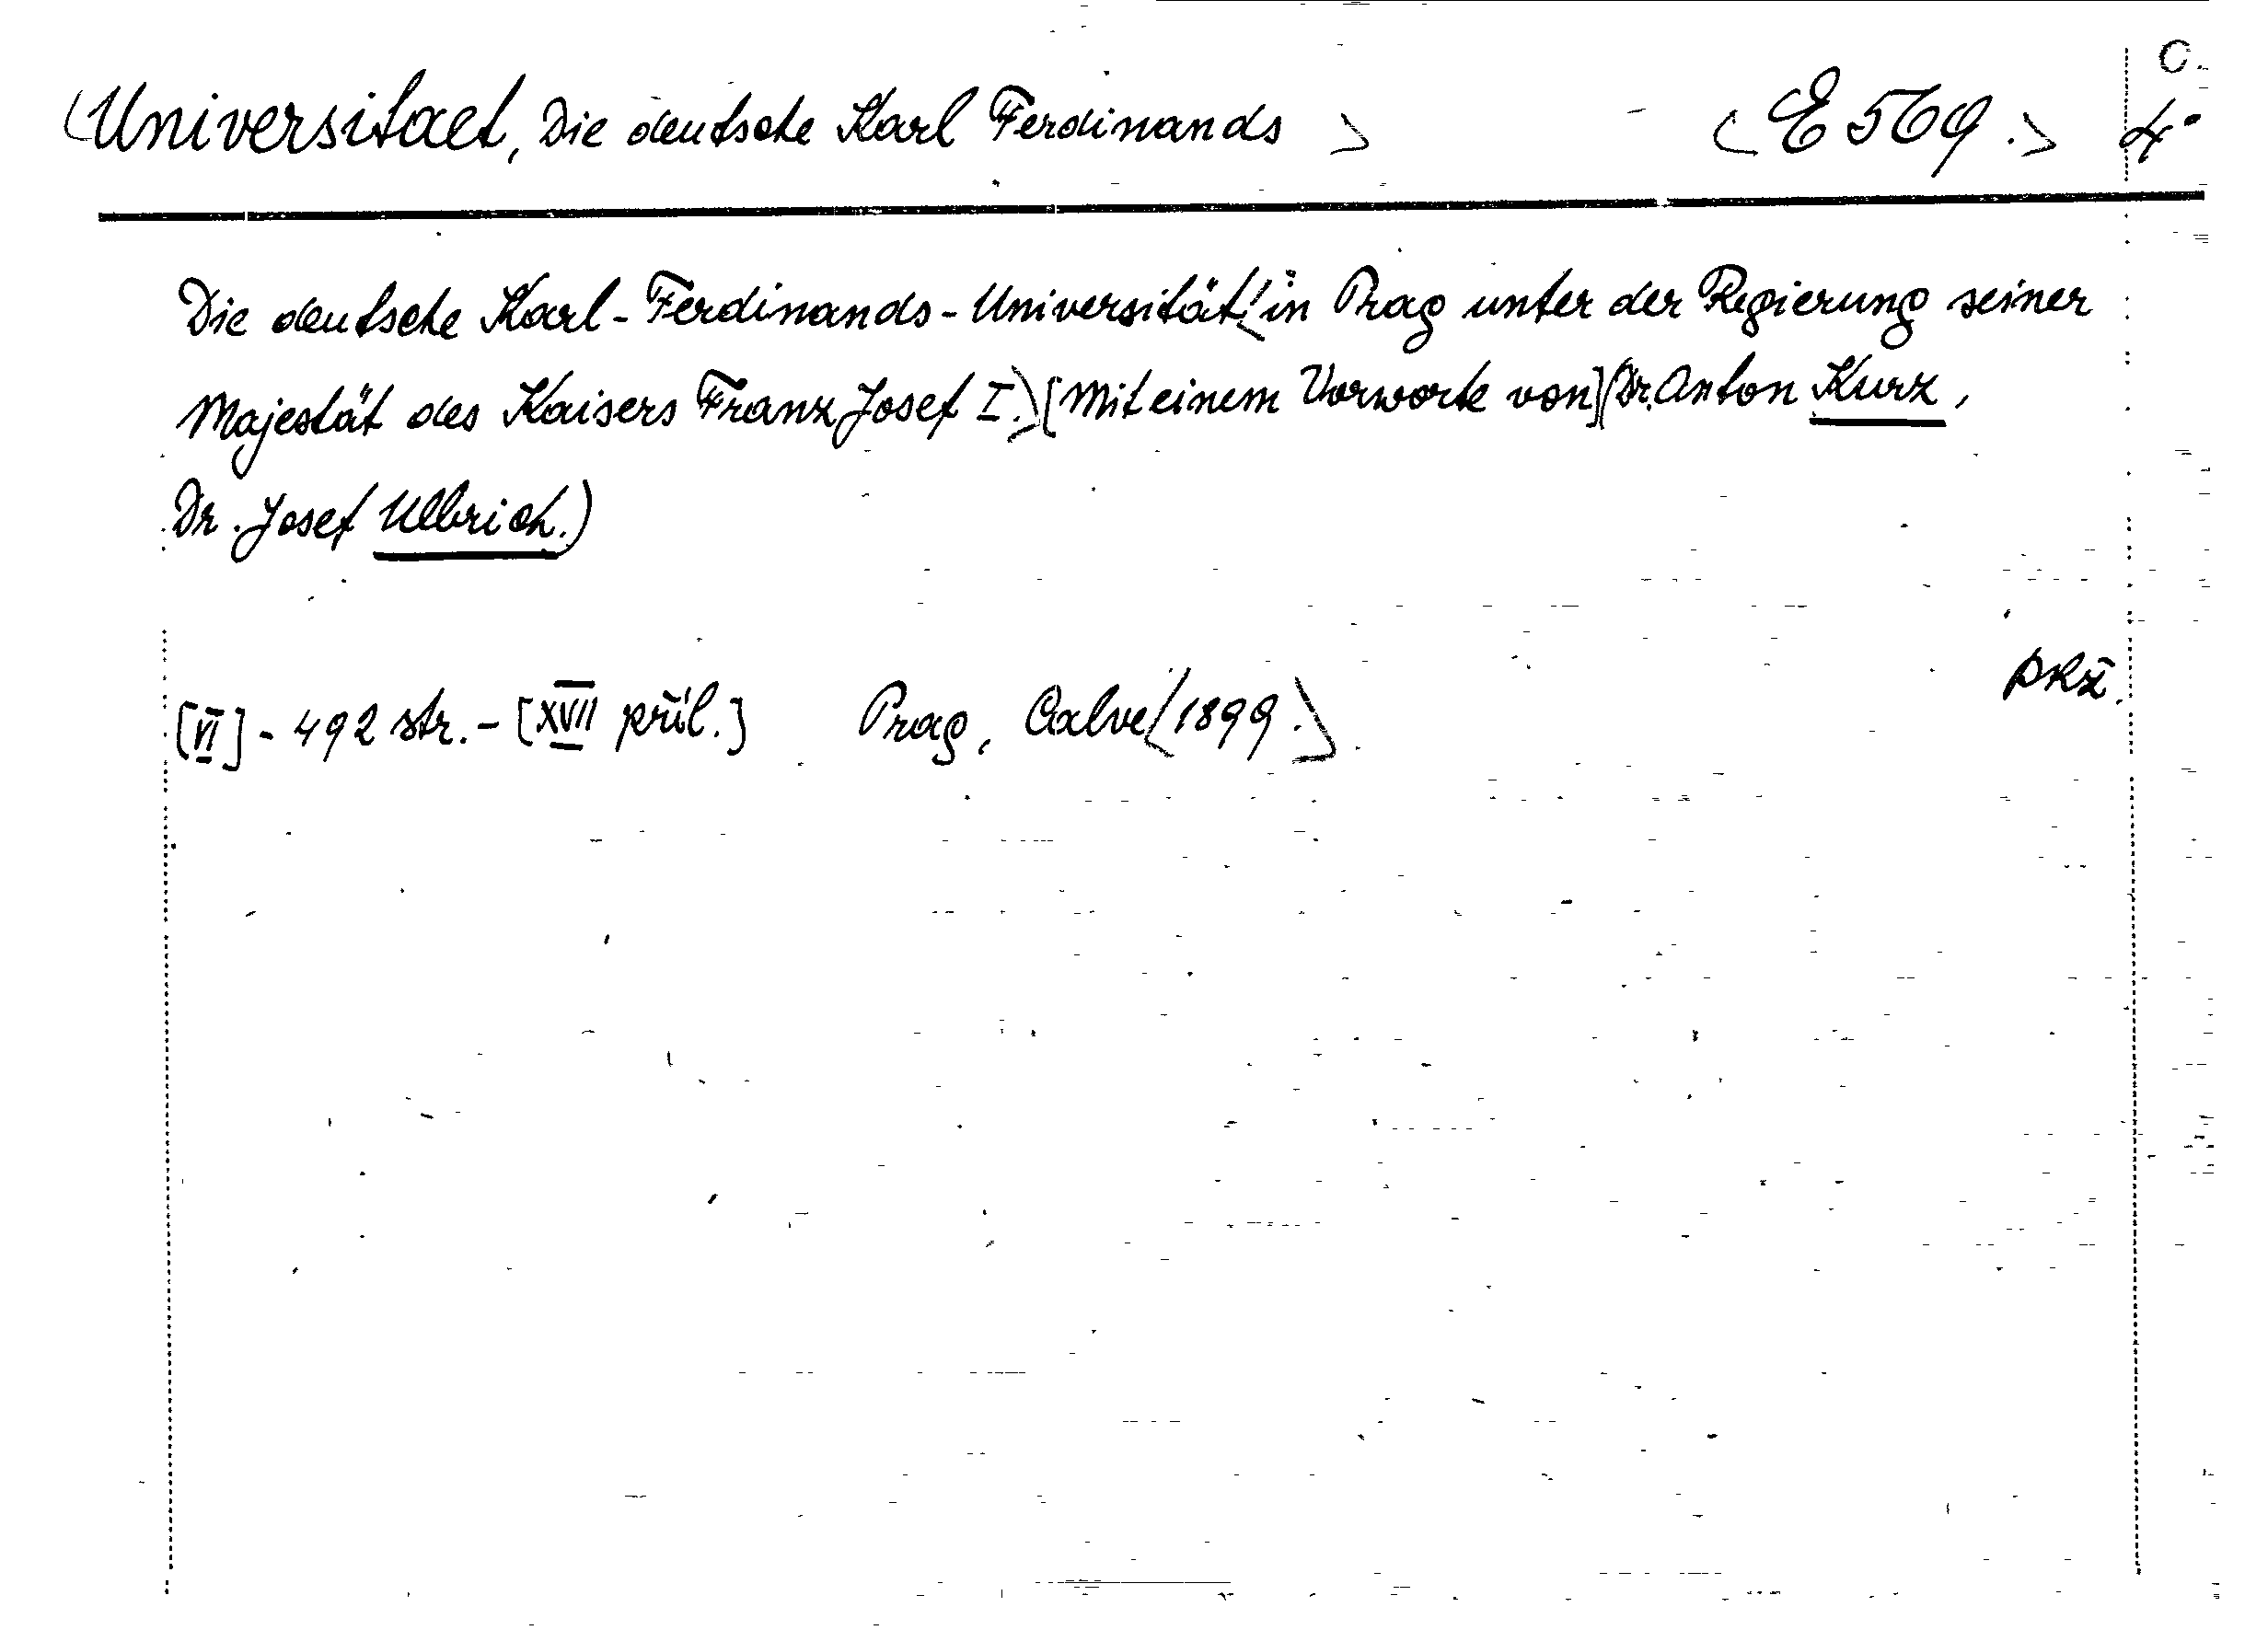 <Universitaet, Die deutsche Karl Ferdinands > <E 569.> C. 4°
Die deutsche Karl-Ferdinands-Universität <in Prag unter der Regierung seiner
Majestät des Kaisers Franz Josef I.> [Mit einem Vorworte von] (Dr. Anton Kurz,
Dr. Josef Ulbrich.)
[VI] - 492 str. - [XVII příl.] Prag, Calve <1899.>